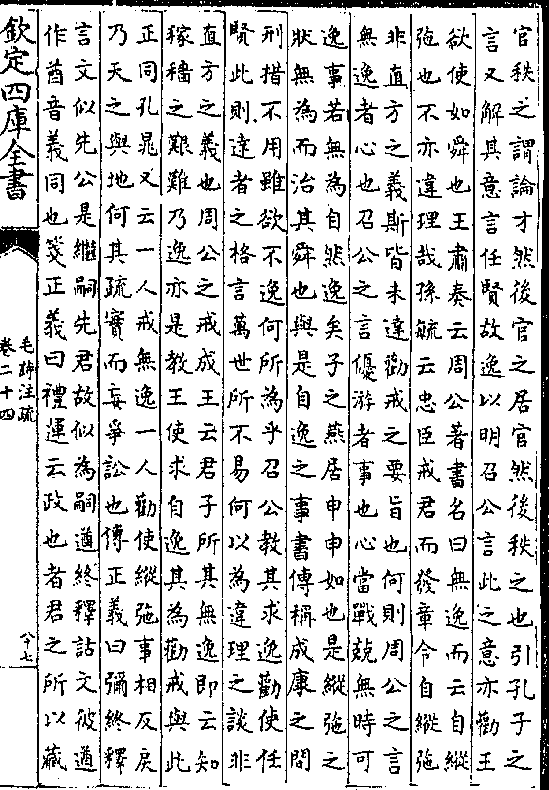 官秩之謂論才然後官之居官然後秩之也引孔子之
言又解其意言任賢故逸以明召公言此之意亦勸王
欲使如舜也王肅奏云周公著書名曰無逸而云自縱
弛也不亦違理哉孫毓云忠臣戒君而發章令自縱弛
非直方之義斯皆未達勸戒之要旨也何則周公之言
無逸者心也召公之言優游者事也心當戰兢無時可
逸事若無為自然逸矣子之燕居申申如也是縱弛之
狀無為而治其舜也與是自逸之事書傳稱成康之間
刑措不用雖欲不逸何所為乎召公教其求逸勸使任
賢此則達者之格言萬世所不易何以為違理之談非
直方之義也周公之戒成王云君子所其無逸即云知
稼穡之艱難乃逸亦是教王使求自逸其為勸戒與此
正同孔晁又云一人戒無逸一人勸使縱弛事相反戾
乃天之與地何其疏實而妄爭訟也傳正義曰彌終釋
言文似先公是繼嗣先君故似為嗣遒終釋詁文彼遒
作酋音義同也箋正義曰禮運云政也者君之所以藏
欽定四庫全書
毛詩注疏
卷二十四
八十七